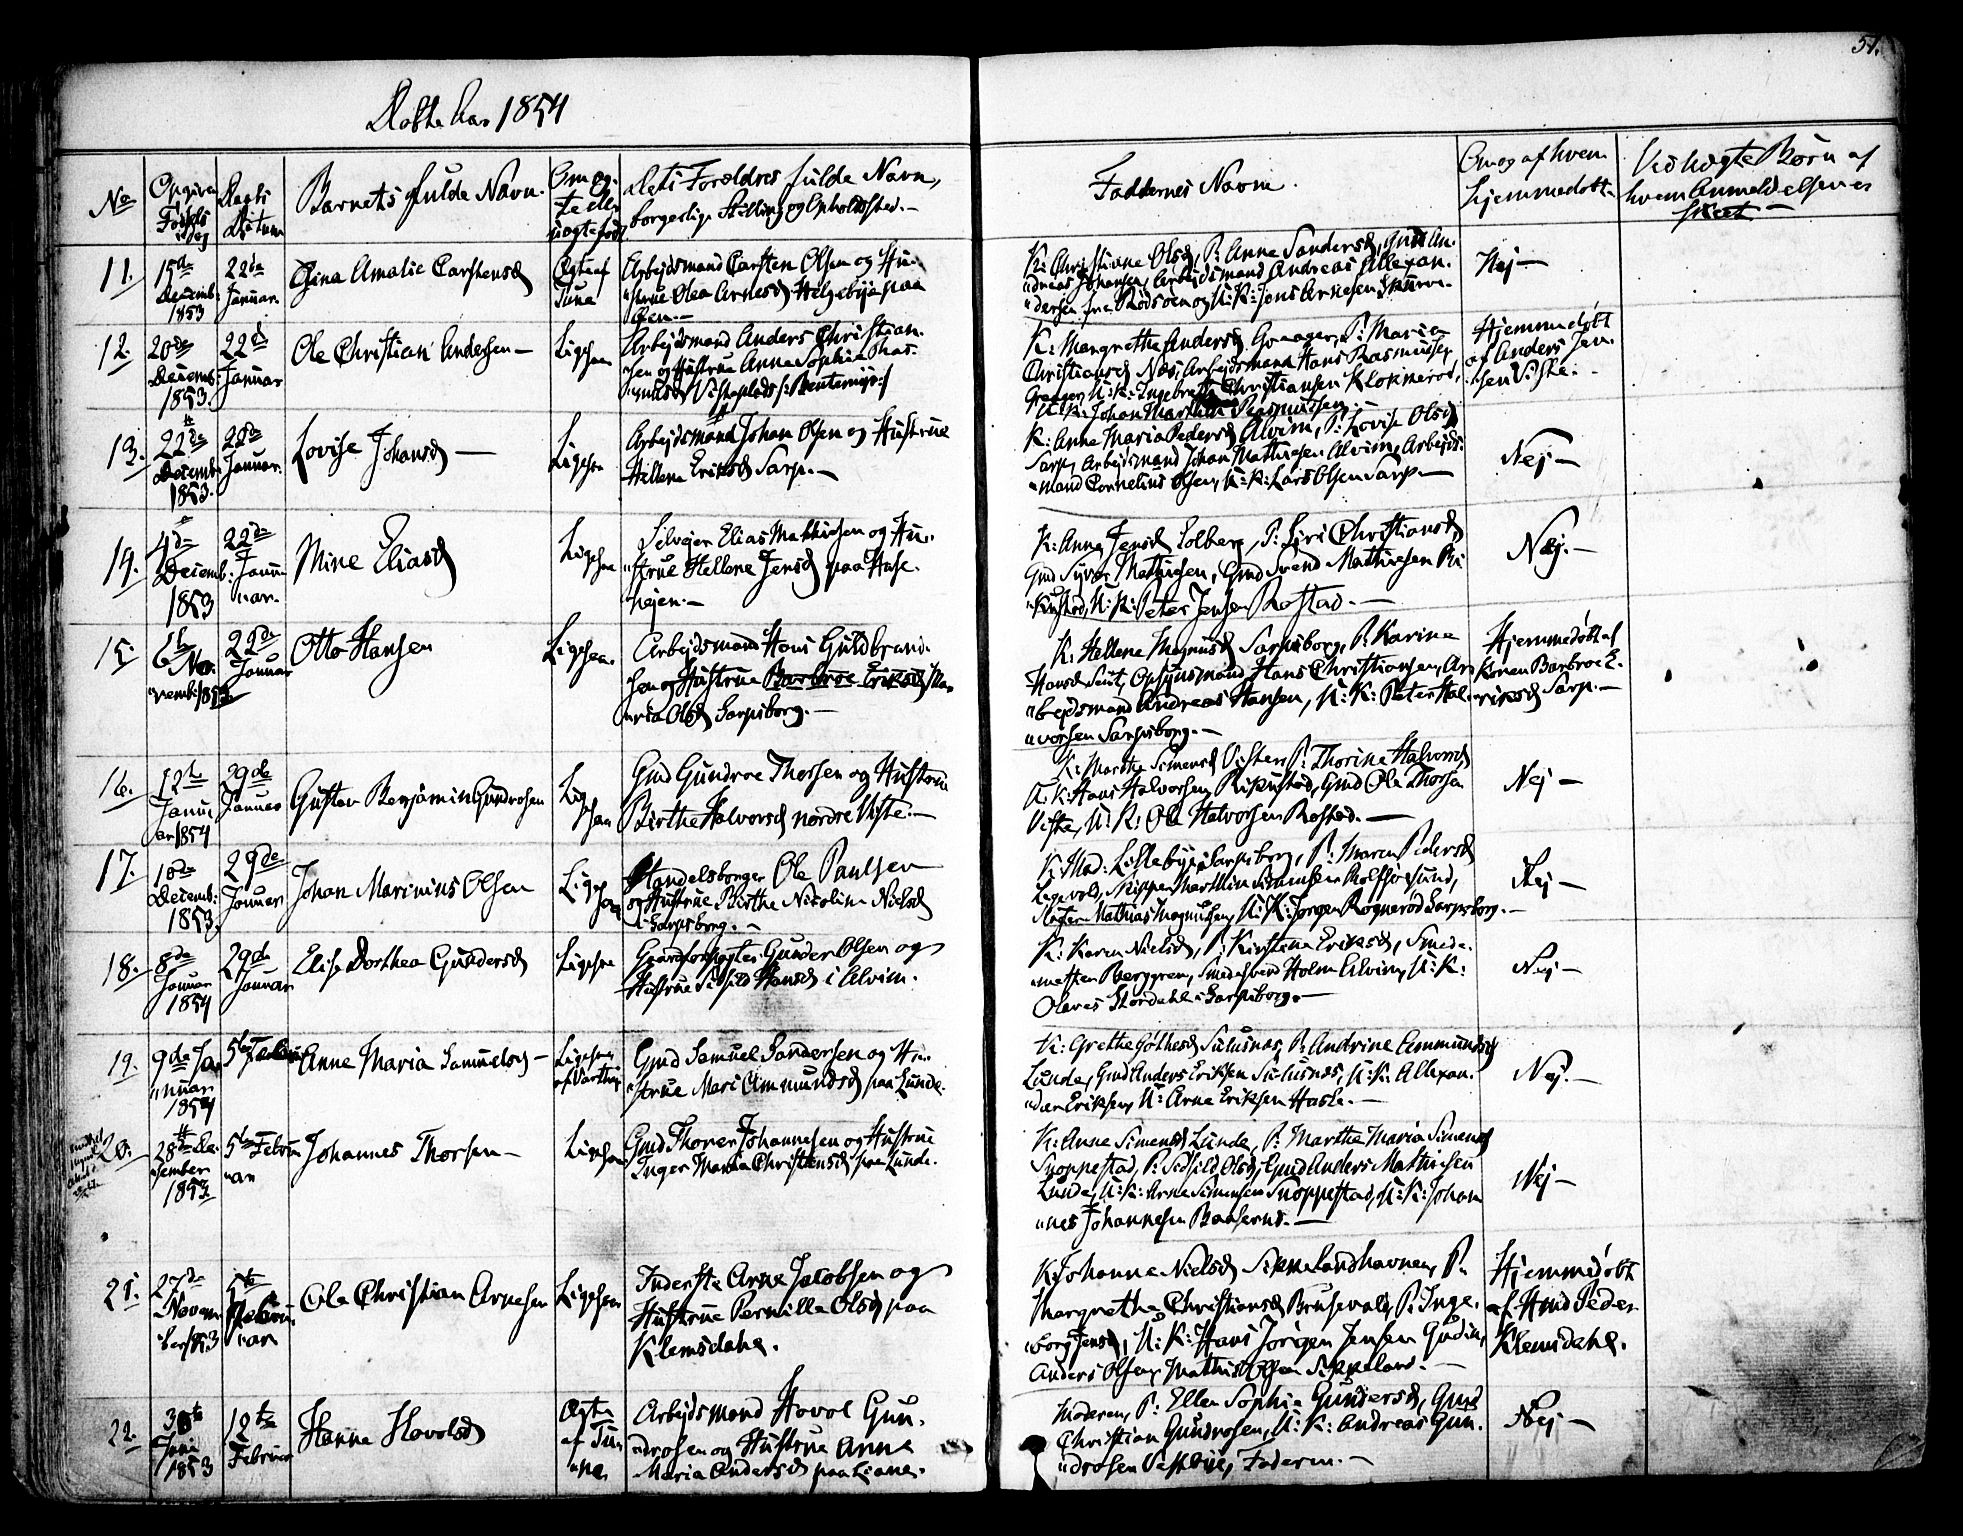 51.
Døbte Aar 1854
No
Opgiven Fødselsdag
Daabs Datum
Barnets fulde Navn.
Om ægte eller uægte født
Dets Forældres fulde Navn,
borgerlige Stilling og Opholdssted.—
Faddernes Navne.
Om og af hvem
hjemmedøbt
Ved uægte Børn af
hvem Anmeldelsen er
skeet —
11.
15de
Decemb:
1853
22de
Januar.
Gina Amalie Carstensd
Ægte af
Tune
Arbejdsmand Carsten Olsen og Hu-
"strue Olea Arnesd Helgebye paa
Øen.—
K: Christiane Olsd, P: Anne Sandersd, Gmd An-
"dreas Johansen, Arbejdsmand Andreas Allexan-
"dersen fra Rodsøen og U: K: Jens Arnesen
Nej —
12.
20de
Decemb:
1853.
22de
Januar
Ole Christian Andersen —
Ligesaa
Arbejdsmand Anders Christian-
sen og Hustrue Anna Sophia Ras-
"musd
K: Margrethe Andersd P: Maria
Christiansd Næs, Arbejdsmand Hans Rasmussen
Greager, U: K: Ingebret Christiansen Klokkerød,
U: K: Johan Martin Rasmussen.—
Hjemmedøbt
af Anders Jen-
"sen Viste.-
13.
22de
Decemb:
1853.
22de
Januar.
Lovise Johansd —
Ligesaa
Arbejdsmand Johan Olsen og Hustrue
Hellene Eriksd Sarp.—
K: Anne Maria Pedersd Alvim, P: Lovise Olsd
Sarp, Arbejdsmand Johan Mathiesen Alvim, Arbejds-
"mand Cornelius Olsen, U: K: Lars Olsen Sarp.—
Nej —
14.
4de
Decemb:
1853
22de
Janu-
"ar.
Mine Eliasd
Ligesaa
Selvejer Elias Mathiesen og Hu-
"strue Hellene Jensd paa Hase-
"hejen.—
K: Anne Jensd Solberg, P: Siri Christiansd,
Gmd Syver Mathiesen, Gmd Svend Mathiesen Ri-
"kustad, U: K: Peter Jensen Rostad.—
Nej.—
15.
6te No-
vemb: 1853
22de
Januar
Otto Hansen
Ligesaa.
Arbejdsmand Hans Guldbrand-
sen og Hustrue Barbroe Eriksd Ma-
"ria Olsd Sarpsborg.—
K: Hellene Magnusd Sarpsborg, P: Karine
Hansd Opsynsmand Hans Christiansen, Ar-
"bejdsmand Andreas Hansen, U: K: Peter Hal-
"vorsen Sarpsborg.—
Hjemmedøbt af
Konen Barbroe E-
"riksd Sarp.—
16.
12te
Janu-
ar 1854
29de
Januar
Gustav Benjamin Gundrosen
Lig-
esaa
Gmd Gundroe Thorsen og Hustrue
Birthe Halvorsd nordre Viste.—
K: Marthe Simensd Visten, P: Thorine Halvorsd
U: K: Hans Halvorsen Rikustad, Gmd Ole Thorsen
Viste, U: K: Ole Halvorsen Rostad.—
Nej —
17.
18de
Decemb:
1853.
29de
Januar
Johan Marinius Olsen
Ligesaa
Handelsborger Ole Paulsen
og Hustrue Birthe Nicoline Nielsd
i Sarpsborg.—
K: Mad: Lillebye i Sarpsborg, P: Maren Pedersd
Skipper Marthin Simensen
Mathias Magnusen, U: K: Jørgen Rognerød Sarpsborg.—
Nej —
18.
8de
Januar
1854
29de
Januar
Elise Dorthea Gundersd
Ligesaa
Gaardforpagter Gunder Olsen og
Hustrue Sidsild Hansd i Alvim.
K: Karen Nielsd, P: Kirstine Eriksd, Smede-
"mester Berggren, Smedesvend Holm Alvim, U: K:
Olaves Stordahl i Sarpsborg.—
Nej —
19.
9de Ja-
"nuar
1854
5te Februar
Anne Maria Samuelsd —
Ligesaa
af Varteig
Gmd Samuel Sandersen og Hu-
"strue Mari Ammundsd paa Lunde.
K: Grethe Gøthesd Sulusnæs, P: Andrine Ammundsd
Lunde, Gmd Anders Eriksen Sulusnæs, U: K: Allexan-
"der Eriksen, U: Arne Eriksen Hasle.—
Nej.—
20.
28de De-
cember
1853
5te Febru-
"ar
Johannes Thorsen —
Ligesaa
Gmd Thorer Johannesen og Hustrue
Inger Maria Christensd paa Lunde.
K: Anne Simensd Lunde, P: Marthe Maria Simensd
Snoppestad, P: Sidsild Olsd, Gmd Anders Mathiesen
Lunde, U: K: Arne Simensen Snoppestad, U: K: Johan-
"nes Johannesen Baaserud.—
Nej —
21.
27de
Novem-
ber 1853
5te
Febru-
"ar
Ole Christian Arnesen
Ligesaa
Inderste Arne Jacobsen og
Hustrue Pernille Olsd paa
Klemsdahl.
K: Johanne Nielsd P:
Margrethe Christiansd Brusevold, P: Inge-
"borg Jensd, U: K: Hans Jørgen Jensen
Anders Olsen, Mathis Olsen
Hjemmedøbt
af Hmd Peder
Klemsdahl.
22.
30te
Juni
1853
12te
Februar
Hanne Hovolsd
Ægte
af Tu-
"ne
Arbejdsmand Hovol Gun-
"drosen og Hustrue Anne
Maria Andersd paa Liane.
Moderen, P: Ellen Sophie Gundersd, Gmd
Christian Gundrosen, U: K: Andreas Gun-
"drosen Vestbye, Faderen.—
Nej —